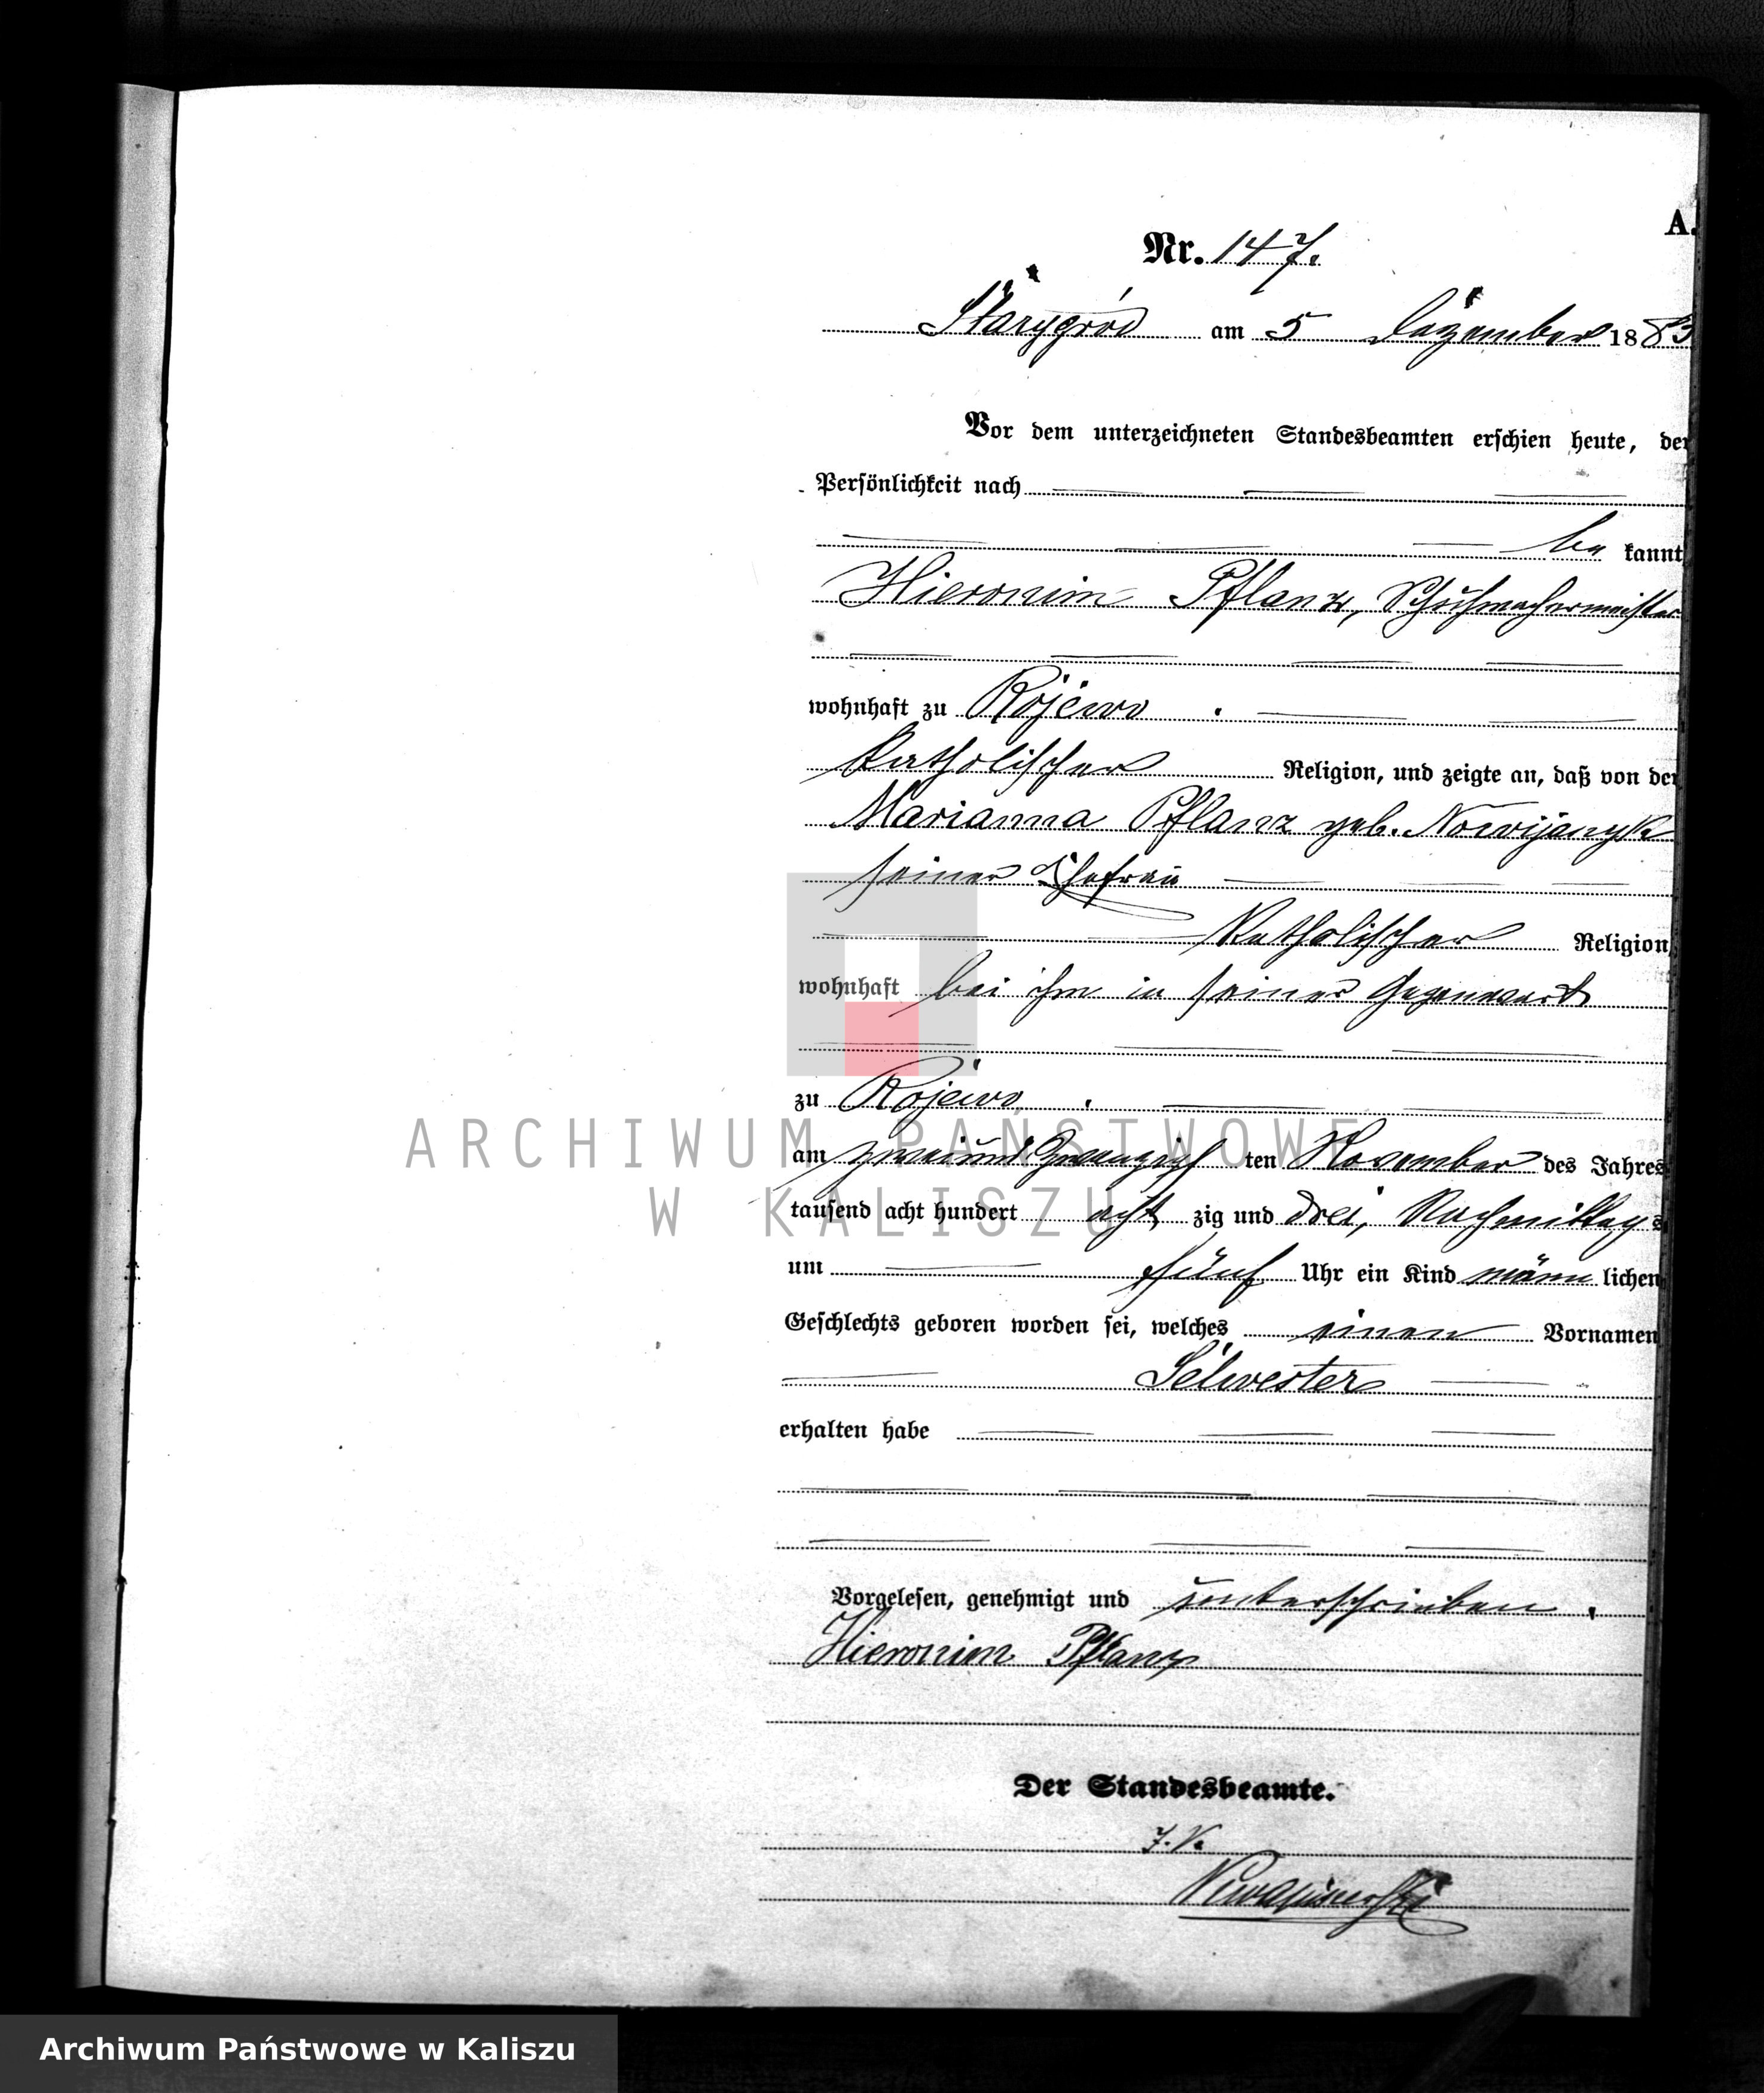 A.
Nr. 147.
Starygród am 5 Dezember 1883
Vor dem unterzeichneten Standesbeamten erschien heute, der
Persönlichkeit nach
be kannt
Hieronim Pflanz, Schuhmachermeister
wohnhaft zu Rojewo.
katholischer Religion, und zeigte an, daß von der
Marianna Pflanz geb.
seiner Ehefrau
katholischer Religion,
wohnhaft bei ihm in seiner Gegenwart
zu Rojewo.
am zweiundzwanzigsten November des Jahres
tausend acht hundert acht zig und drei, Nachmittags
um fünf Uhr ein Kind männ lichen
Geschlechts geboren worden sei, welches einen Vornamen
Selwester
erhalten habe
Vorgelesen, genehmigt und unterschrieben.
Hieronim Pflanz
Der Standesbeamte.
J. V.
ARCHIWUM PAŃSTWOWE
W KALISZU
Archiwum Państwowe w Kaliszu